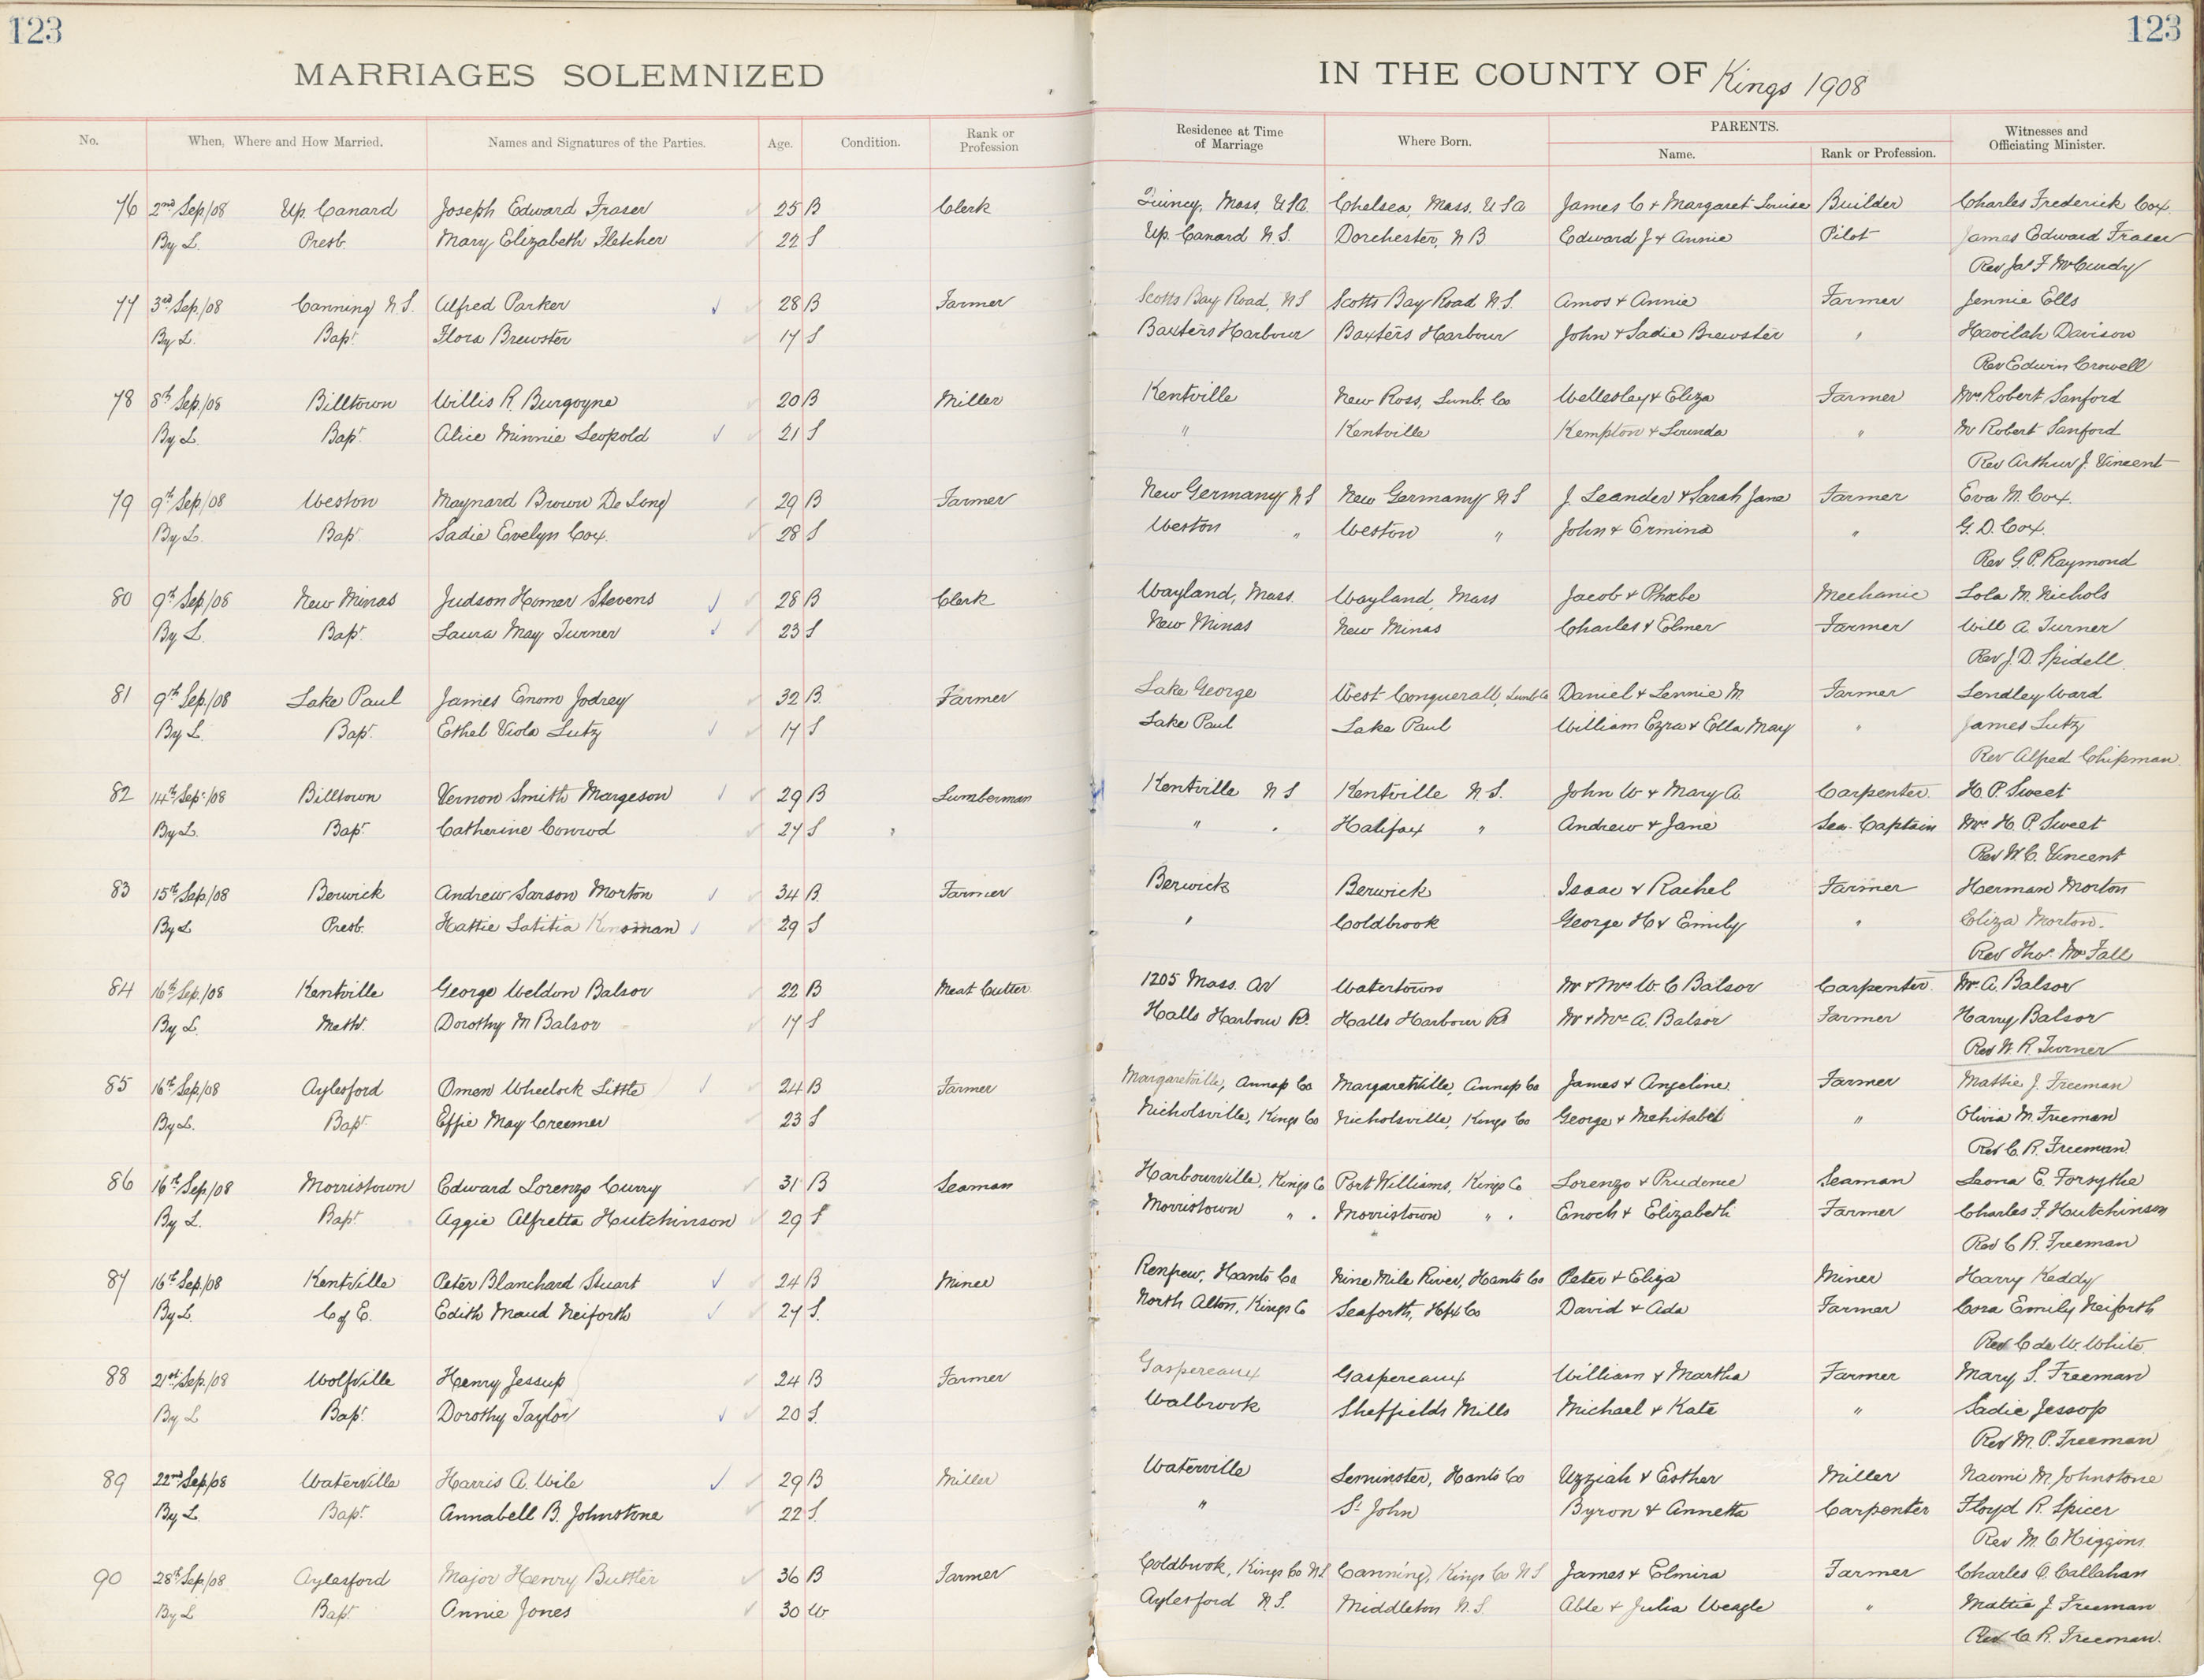 123
123
MARRIAGES SOLEMNIZED IN THE COUNTY OF Kings 1908
No. When, Where and How Married. Names and Signatures of the Parties. Age. Condition. Rank or Profession Residence at Time of Marriage Where Born. PARENTS. Name. Rank or Profession. Witnesses and Officiating Minister.
76 2nd Sep/08 Up. Canard Joseph Edward Fraser 25 B Clerk Quincy, Mass, U.S.A. Chelsea, Mass, U S A James C + Margaret Louise Builder Charles Frederick Cox
By L. Presb. Mary Elizabeth Fletcher 22 S Up. Canard N.S. Dorchester, N B Edward J + Annie Pilot James Edward Fraser
Rev Jas F McCurdy
77 3rd Sep./08 Canning N.S. Alfred Parker 28 B Farmer Scotts Bay Road, N S Scotts Bay Road N.S. Amos + Annie Farmer Jennie Ells
By L. Bapt. Flora Brewster 17 S Baxters Harbour Baxters Harbour John + Sadie Brewster " Havilah Davison
Rev Edwin Crowell
78 8th Sep./08 Billtown Willis R. Burgoyne 20 B Miller Kentville New Ross, Lunb. Co Wellesley + Eliza Farmer Mrs Robert Sanford
By L. Bapt. Alice Minnie Leopold 21 S " Kentville Kempton + Lounda " Mr Robert Sanford
Rev Arthur J. Vincent
79 9th Sep/08 Weston Maynard Brown De Long 29 B Farmer New Germany N S New Germany N S J. Leander + Sarah Jane Farmer Eva M. Cox.
By L. Bapt. Sadie Evelyn Cox. 28 S Weston " Weston " John + Ermina " G. D. Cox.
Rev G. P. Raymond
80 9th Sep/08 New Minas Judson Homer Stevens 28 B Clerk Wayland, Mass. Wayland, Mass Jacob + Phobe Mechanic Lola M. Nichols
By L. Bapt. Laura May Turner 23 S New Minas New Minas Charles + Elmer Farmer Will A. Turner
Rev J. D. Spidell.
81 9th Sep./08 Lake Paul James Enom Jodrey 32 B. Farmer Lake George West Conquerall, Lunb Co Daniel + Lennie M. Farmer Lendley Ward
By L. Bapt. Ethel Viola Lutz 17 S Lake Paul Lake Paul William Ezra + Ella May " James Lutz
Rev Alfred Chipman.
82 14th Sep./08 Billtown Vernon Smith Margeson 29 B Lumberman Kentville N S Kentville N.S. John W + Mary A. Carpenter. H. P. Sweet
By L. Bapt. Catherine Conrod 27 S " Halifax " Andrew + Jane Sea. Captain Mrs H. P. Sweet
Rev W. C. Vincent
83 15th Sep./08 Berwick Andrew Sarson Morton 34 B. Farmer Berwick Berwick Isaac + Rachel Farmer Herman Morton
By L Presb. Hattie Latitia Kinsman 29 S " Coldbrook George H + Emily " Eliza Morton.
Rev Thos. Mc Fall
84 16th Sep./08 Kentville George Weldon Balsor 22 B Meat Cutter 1205 Mass. Av Watertown Mr + Mrs W. C Balsor Carpenter. Mr. A. Balsor
By L. Meth. Dorothy M Balsor 17 S Halls Harbour Rd. Halls Harbour Rd Mr + Mrs A. Balsor Farmer Harry Balsor
Rev W. R Turner
85 16th Sep/08 Aylesford Omen Wheelock Little 24 B Farmer Margaretville, Annap Co Margaretville, Annap Co James + Angeline Farmer Mattie J. Freeman
By L. Bapt. Effie May Creemer 23 S Nicholsville, Kings Co Nicholsville, Kings Co George + Mehitabel " Olivia M. Freeman
Rev C. R. Freeman.
86 16th Sep/08 Morristown Edward Lorenzo Curry 31 B Seaman Harbourville, Kings Co Port Williams, Kings Co Lorenzo + Prudence Seaman Leona E. Forsythe
By L. Bapt. Aggie Alfretta Hutchinson 29 S Morristown " . Morristown " . Enoch + Elizabeth Farmer Charles F. Hutchinson
Rev C R. Freeman
87 16th Sep./08 Kentville Peter Blanchard Stuart 24 B Miner Renfrew, Hants Co Nine Mile River, Hants Co Peter + Eliza Miner Harry Keddy
By L. C of E. Edith Maud Neiforth 27 S. North Alton, Kings Co Seaforth, Hfx Co David + Ada Farmer Cora Emily Neiforth
Rev C de W. White.
88 21st Sep./08 Wolfville Henry Jessup 24 B Farmer Gaspereaux Gaspereaux William + Martha Farmer Mary S. Freeman
By L Bapt. Dorothy Taylor 20 S. Walbrook Sheffields Mills Michael + Kate " Sadie Jessop
Rev M. P. Freeman
89 22nd Sep/08 Waterville Harris A. Wile 29 B Miller Waterville Leminster, Hants Co Uzziah + Esther Miller Naomi M. Johnstone
By L. Bapt. Annabell B. Johnstone 22 S. " St John Byron + Annetta Carpenter Floyd R. Spicer
Rev M. C Higgins.
90 28th Sep/08 Aylesford Major Henry Butler 36 B Farmer Coldbrook, Kings Co N S Canning, Kings Co N S James + Elmira Farmer Charles O. Callahan
By L Bapt. Annie Jones 30 W Aylesford N.S. Middleton N.S. Able + Julia Weagle " Mattie J. Freeman
Rev C. R. Freeman.